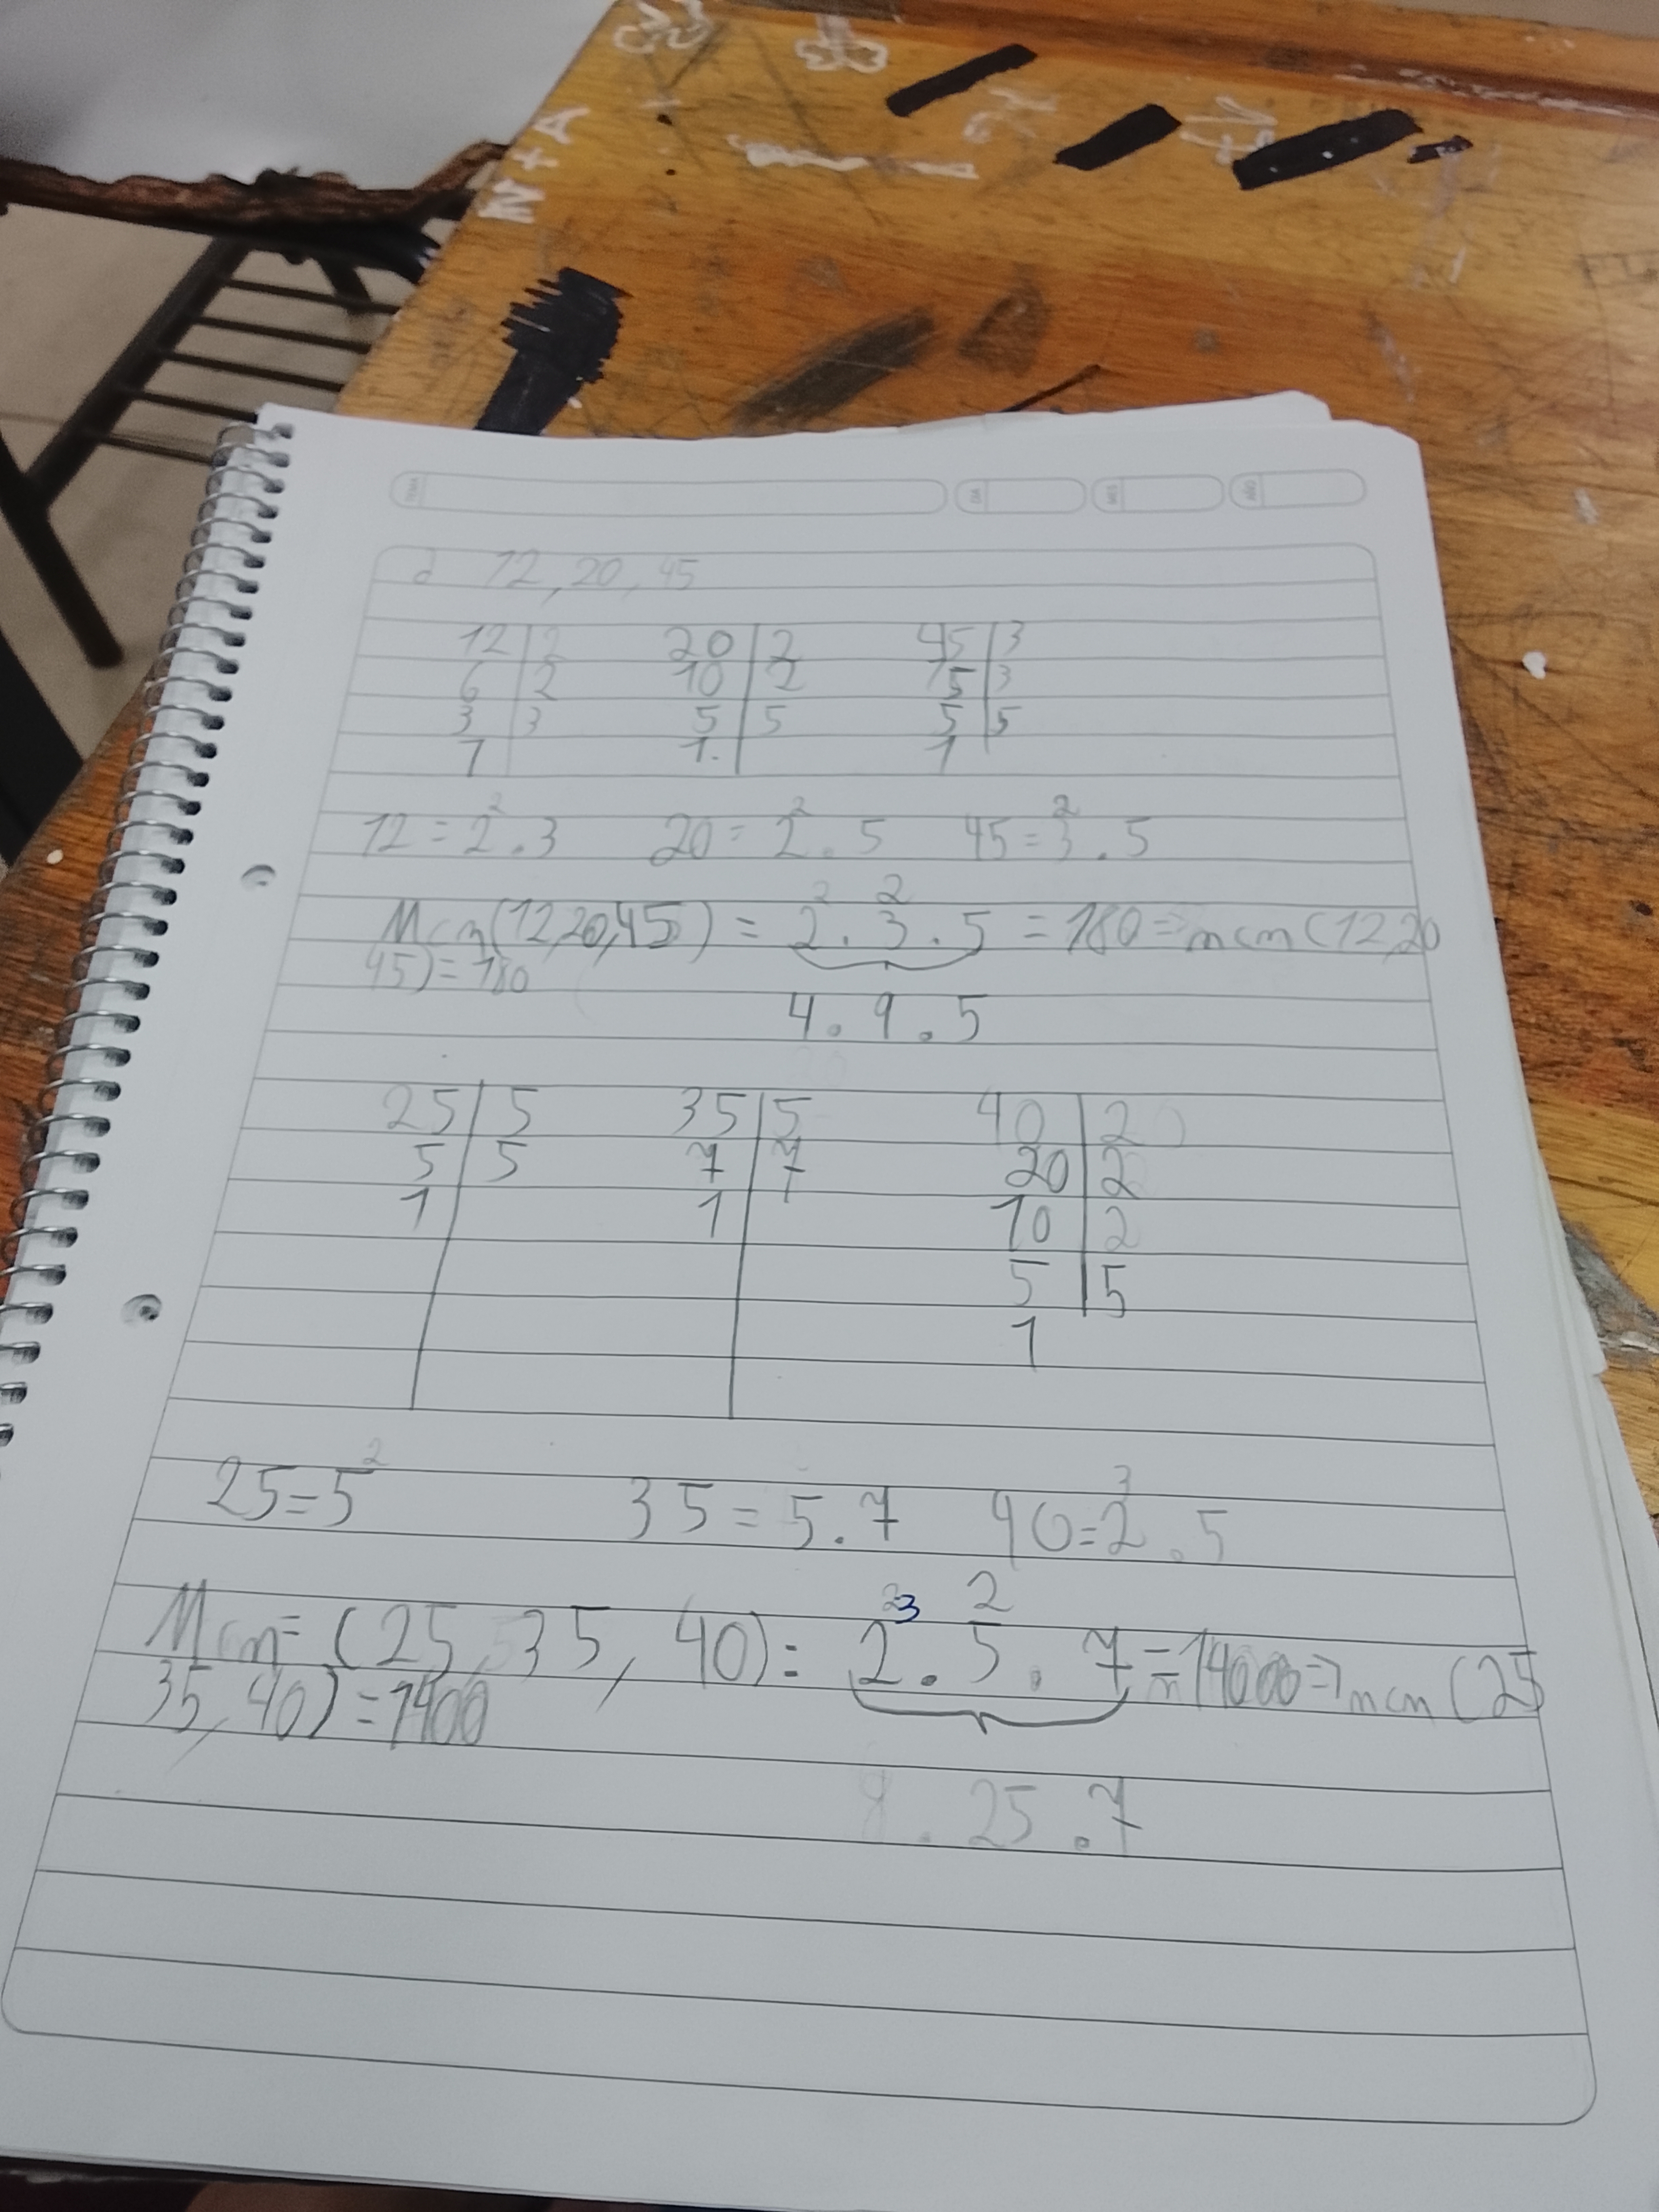 N + A
TEMA DIA MES AÑO
d 12, 20, 45
12 | 2 20 | 2 45 | 3
6 | 2 10 | 2 15 | 3
3 | 3 5 | 5 5 | 5
1 1. 1
12 = 2² . 3 20 = 2² . 5 45 = 3² . 5
Mcm(12,20,45) = 2² . 3² . 5 = 180 => mcm (12,20
45) = 180
4 . 9 . 5
25 | 5 35 | 5 40 | 2
5 | 5 7 | 7 20 | 2
1 1 10 | 2
5 | 5
1
25 = 5² 35 = 5 . 7 40 = 2³ . 5
Mcm = (25, 35, 40) = 2³ . 5² . 7 = 1400 => mcm (25
35, 40) = 1400
8 . 25 . 7